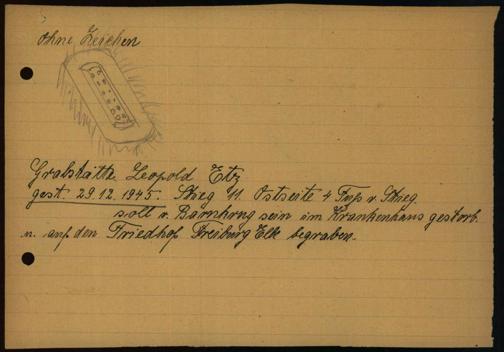 Ohne Zeichen
Grabstätte Leopold Etz
gest. 29.12.1945. Stieg 11. Ostseite 4 Fuß v. Stieg.
soll v. Barnkrug sein im Krankenhaus gestorb.
u. auf den Friedhof Freiburg Elbe begraben.